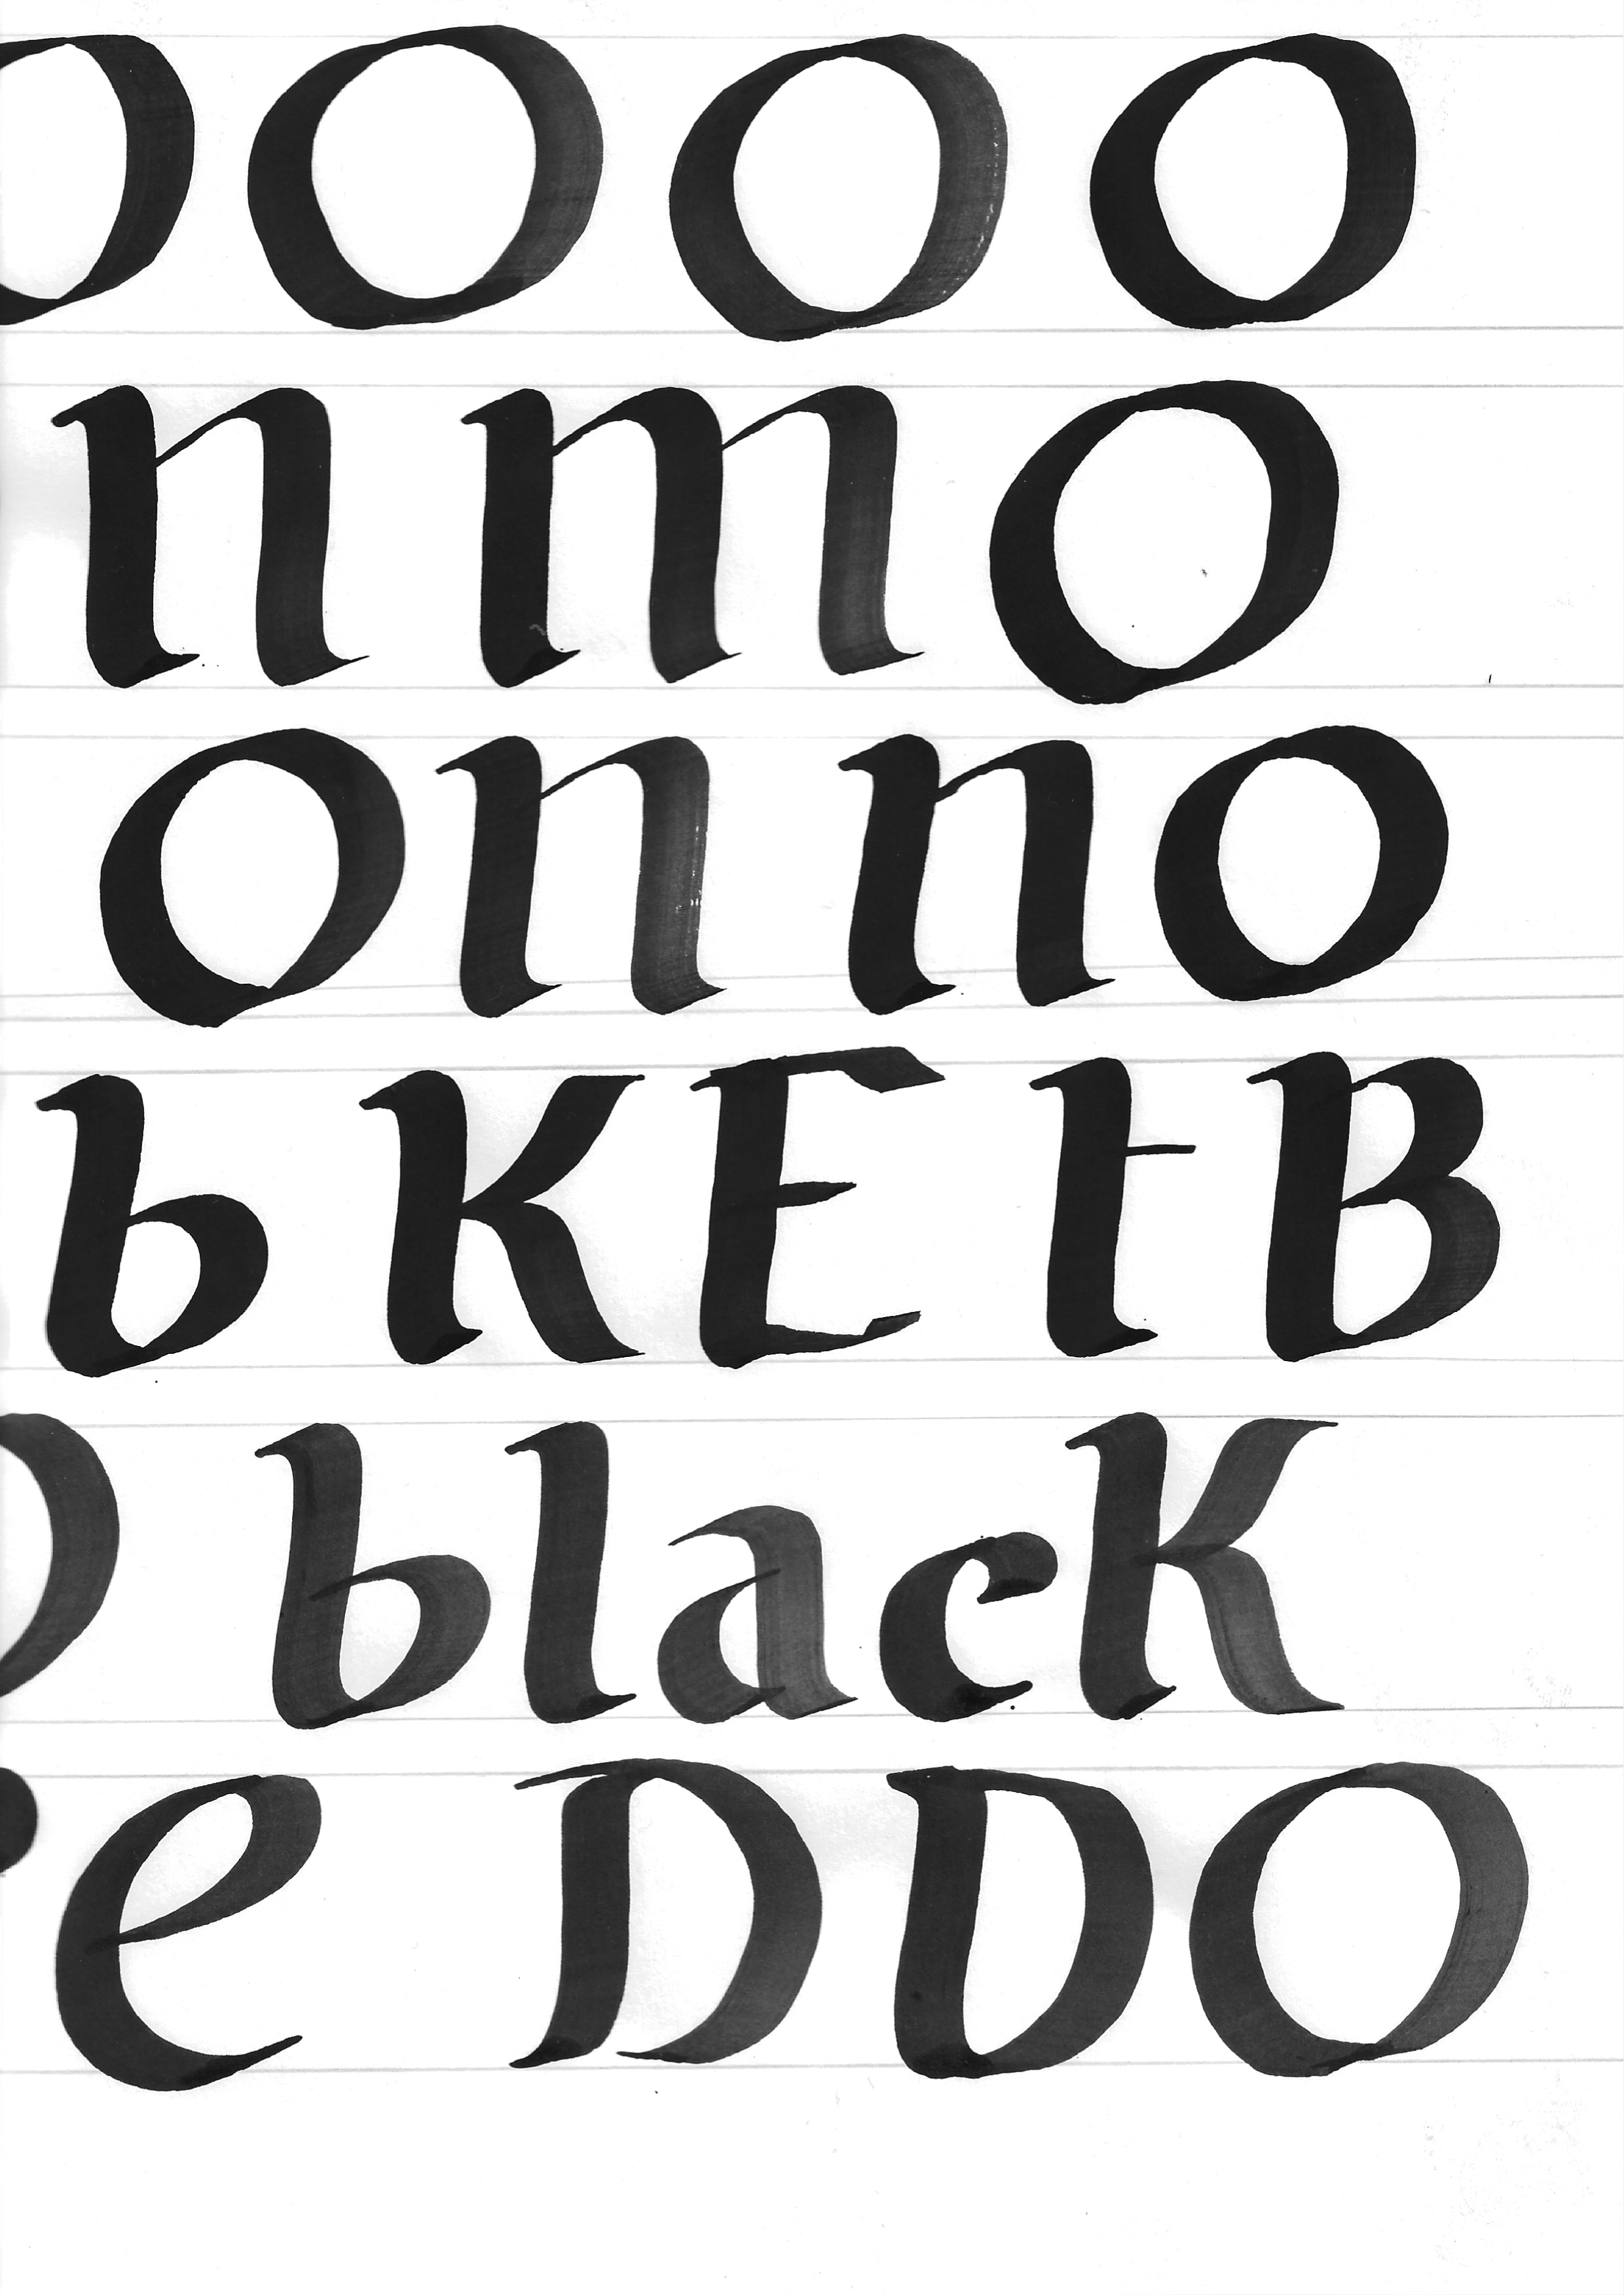 o o o o
n m o
o n n o
b K E t B
blacK
e D D O